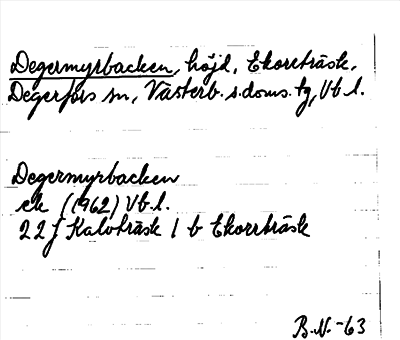 Degermyrbacken, höjd, Ekorrträsk,
Degerfors sn, Västerb. s. doms. tg, Vb l.
Degermyrbacken
ek (1962) Vb l.
22 J Kalvträsk 1 b Ekorrträsk
B.N. -63